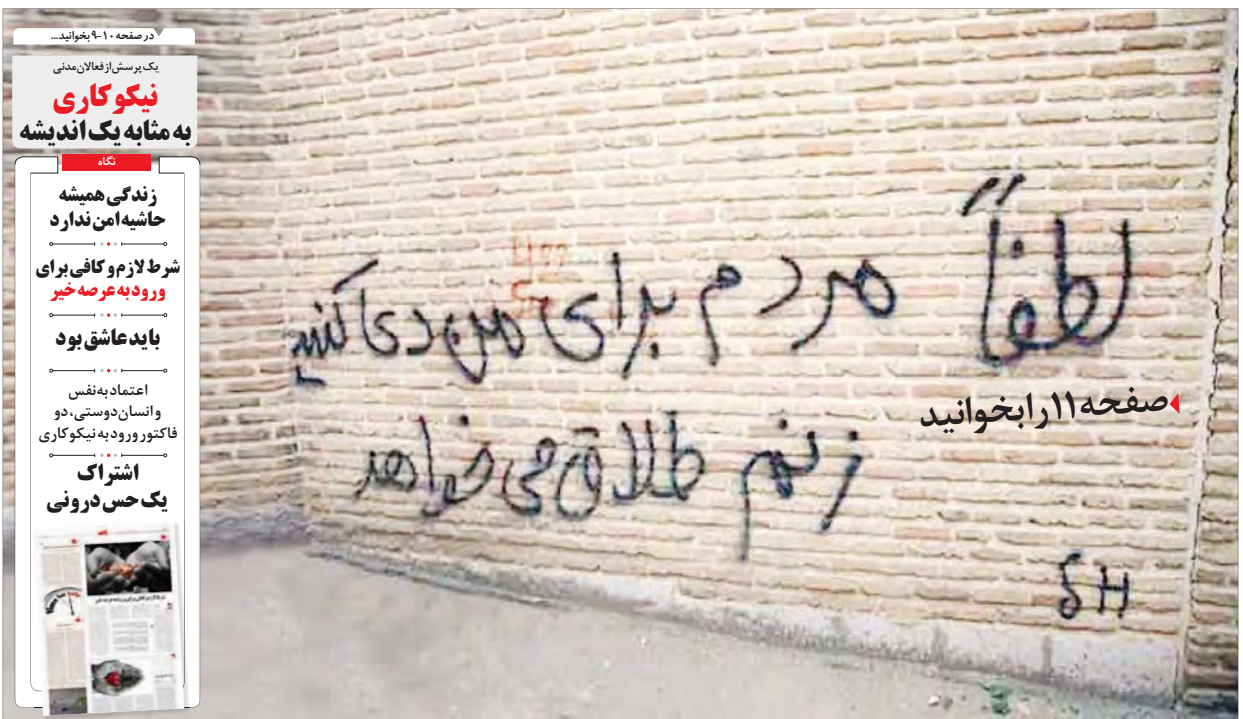 در صفحه ۱۰-۹ بخوانید...
یک پرسش از فعالان مدنی
نیکوکاری
به مثابه یک اندیشه
نگاه
زندگی همیشه
حاشیه امن ندارد
شرط لازم و کافی برای
ورود به عرصه خیر
باید عاشق بود
اعتماد به نفس
و انسان دوستی، دو
فاکتور ورود به نیکوکاری
اشتراک
یک حس درونی
لطفاً مردم برای من دعا کنید
صفحه ۱۱ را بخوانید
زنم طلاق می خواهد
SH